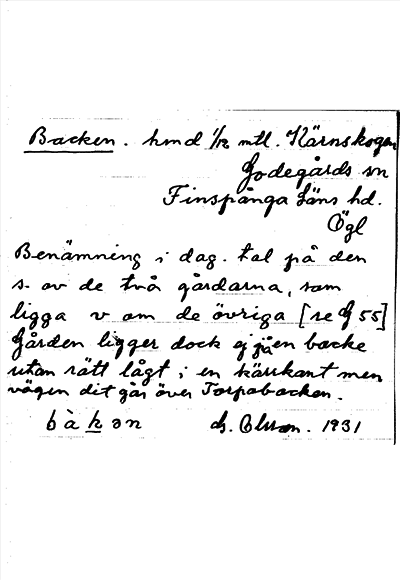 Backen. hmd 1/12 mtl. Kärnskogen
Godegårds sn
Finspånga läns hd.
Ögl
Benämning i dag. tal på den
s. av de två gårdarna, som
ligga v om de övriga [se G 55]
Gården ligger dock ej på en backe
utan rätt lågt i en kärrkant men
vägen dit går över Torpabacken.
bàkən
Olsson. 1931